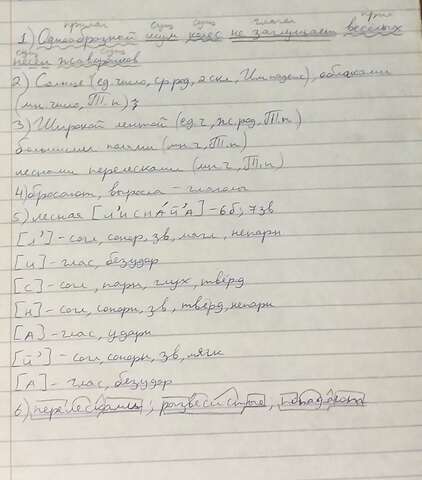 прилаг сущ сущ глагол прил
1) Однообразный шум колёс не заглушает весёлых
сущ сущ
песен жаворонков
2) Солнце (ед. число, ср.род, 2 скл, Им.падеж), облаками
(мн. число, Т.п.)
3) Широкой лентой (ед.ч, ж.род, Т.п)
большими полями (мн.ч, Т.п)
лесными перелесками (мн.ч, Т.п)
4) бросают, выросла - глаголы
5) лесная [л'иснáй'а] - 6б, 7зв
[л'] - согл, сонор, зв, мягк, непарн
[и] - глас, безудар
[с] - согл, парн, глух, твёрд
[н] - согл, сонорн, зв, твёрд, непарн
[а] - глас, ударн
[й'] - согл, сонорн, зв, мягк
[а] - глас, безудар
6) перелесками, развесистые,